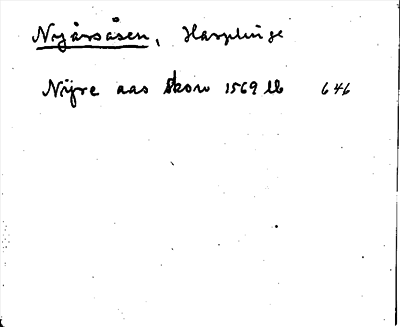 Nyårsåsen, Harplinge
Nijre aas skow 1569 lb 646